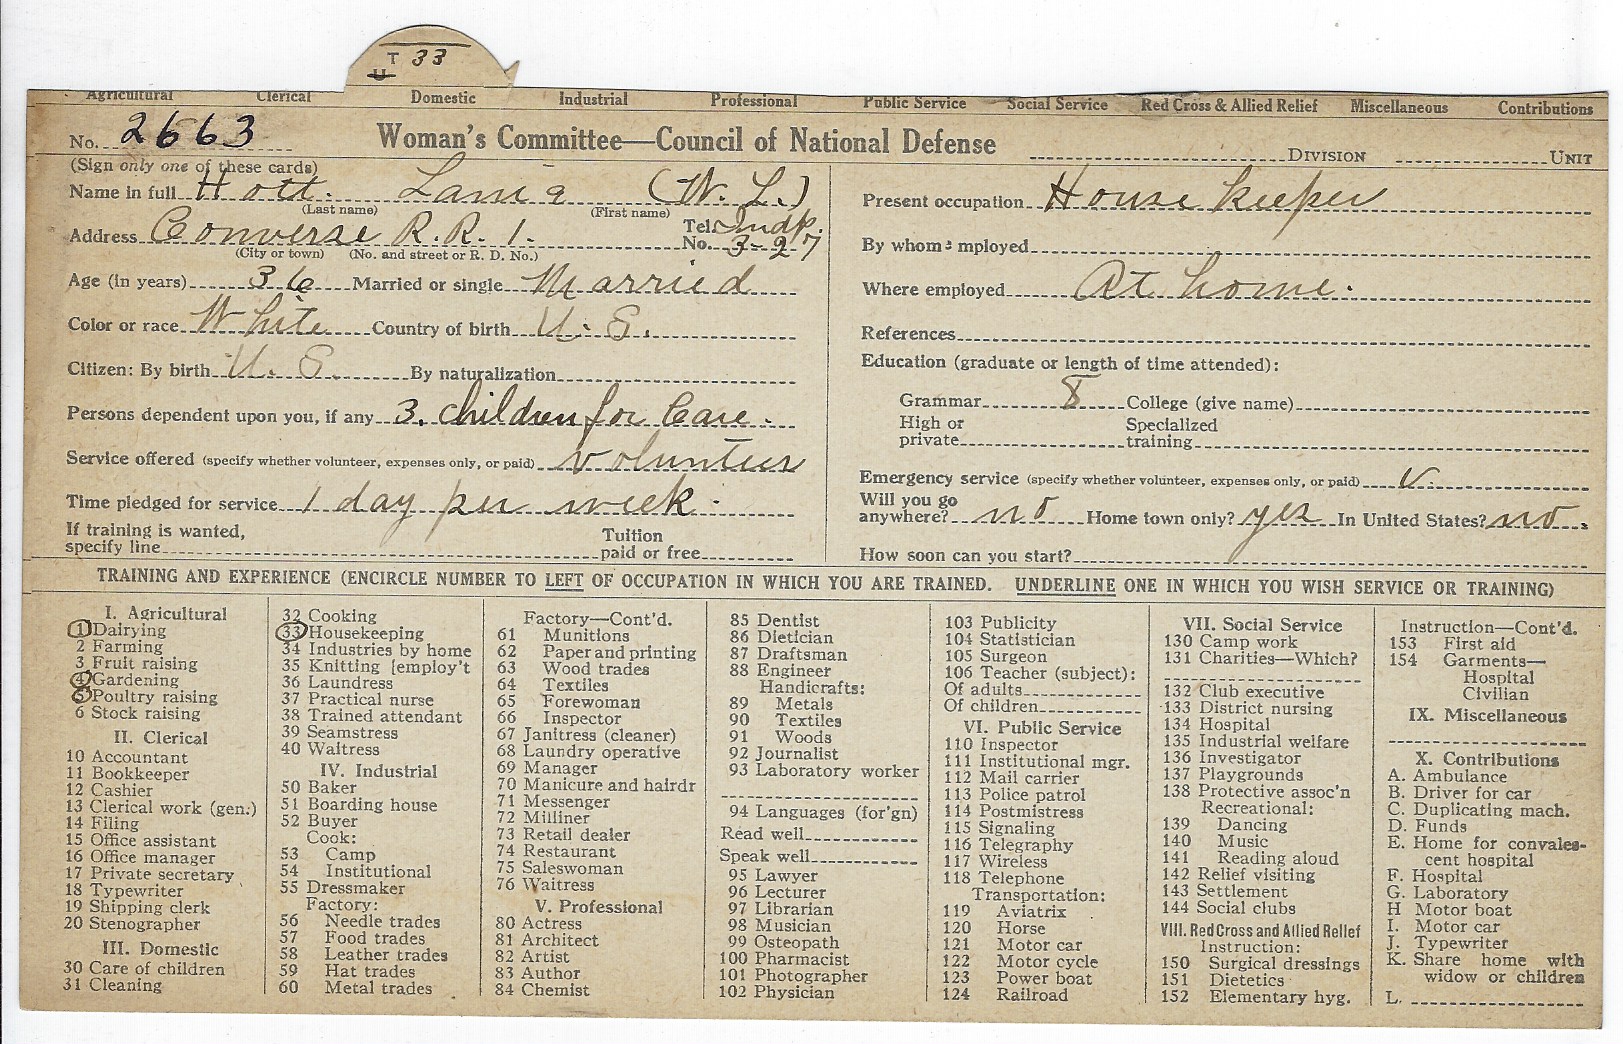 T 33
U
Agricultural Clerical Domestic Industrial Professional Public Service Social Service Red Cross & Allied Relief Miscellaneous Contributions
No. 2663 Woman's Committee—Council of National Defense DIVISION UNIT
(Sign only one of these cards)
Name in full Hott. (W. L.)
(Last name) (First name)
Address Converse R.R. 1. Tel. No. Indp. 3-27
(City or town) (No. and street or R. D. No.)
Age (in years) 36 Married or single Married
Color or race White Country of birth U. S.
Citizen: By birth U. S. By naturalization
Persons dependent upon you, if any 3. children for Care.
Service offered (specify whether volunteer, expenses only, or paid) volunteer
Time pledged for service 1 day per week.
If training is wanted,
specify line Tuition paid or free
Present occupation House keeper
By whom employed
Where employed At home.
References
Education (graduate or length of time attended):
Grammar 8 College (give name)
High or private Specialized training
Emergency service (specify whether volunteer, expenses only, or paid) V.
Will you go anywhere? no Home town only? yes In United States? no.
How soon can you start?
TRAINING AND EXPERIENCE (ENCIRCLE NUMBER TO LEFT OF OCCUPATION IN WHICH YOU ARE TRAINED. UNDERLINE ONE IN WHICH YOU WISH SERVICE OR TRAINING)
I. Agricultural
1 Dairying
2 Farming
3 Fruit raising
4 Gardening
5 Poultry raising
6 Stock raising
II. Clerical
10 Accountant
11 Bookkeeper
12 Cashier
13 Clerical work (gen.)
14 Filing
15 Office assistant
16 Office manager
17 Private secretary
18 Typewriter
19 Shipping clerk
20 Stenographer
III. Domestic
30 Care of children
31 Cleaning
32 Cooking
33 Housekeeping
34 Industries by home
35 Knitting [employ't
36 Laundress
37 Practical nurse
38 Trained attendant
39 Seamstress
40 Waitress
IV. Industrial
50 Baker
51 Boarding house
52 Buyer
Cook:
53 Camp
54 Institutional
55 Dressmaker
Factory:
56 Needle trades
57 Food trades
58 Leather trades
59 Hat trades
60 Metal trades
Factory—Cont'd.
61 Munitions
62 Paper and printing
63 Wood trades
64 Textiles
65 Forewoman
66 Inspector
67 Janitress (cleaner)
68 Laundry operative
69 Manager
70 Manicure and hairdr
71 Messenger
72 Milliner
73 Retail dealer
74 Restaurant
75 Saleswoman
76 Waitress
V. Professional
80 Actress
81 Architect
82 Artist
83 Author
84 Chemist
85 Dentist
86 Dietician
87 Draftsman
88 Engineer
Handicrafts:
89 Metals
90 Textiles
91 Woods
92 Journalist
93 Laboratory worker
94 Languages (for'gn)
Read well
Speak well
95 Lawyer
96 Lecturer
97 Librarian
98 Musician
99 Osteopath
100 Pharmacist
101 Photographer
102 Physician
103 Publicity
104 Statistician
105 Surgeon
106 Teacher (subject):
Of adults
Of children
VI. Public Service
110 Inspector
111 Institutional mgr.
112 Mail carrier
113 Police patrol
114 Postmistress
115 Signaling
116 Telegraphy
117 Wireless
118 Telephone
Transportation:
119 Aviatrix
120 Horse
121 Motor car
122 Motor cycle
123 Power boat
124 Railroad
VII. Social Service
130 Camp work
131 Charities—Which?
132 Club executive
133 District nursing
134 Hospital
135 Industrial welfare
136 Investigator
137 Playgrounds
138 Protective assoc'n
Recreational:
139 Dancing
140 Music
141 Reading aloud
142 Relief visiting
143 Settlement
144 Social clubs
VIII. Red Cross and Allied Relief
Instruction:
150 Surgical dressings
151 Dietetics
152 Elementary hyg.
Instruction—Cont'd.
153 First aid
154 Garments—
Hospital
Civilian
IX. Miscellaneous
X. Contributions
A. Ambulance
B. Driver for car
C. Duplicating mach.
D. Funds
E. Home for convales-
cent hospital
F. Hospital
G. Laboratory
H Motor boat
I. Motor car
J. Typewriter
K. Share home with
widow or children
L.